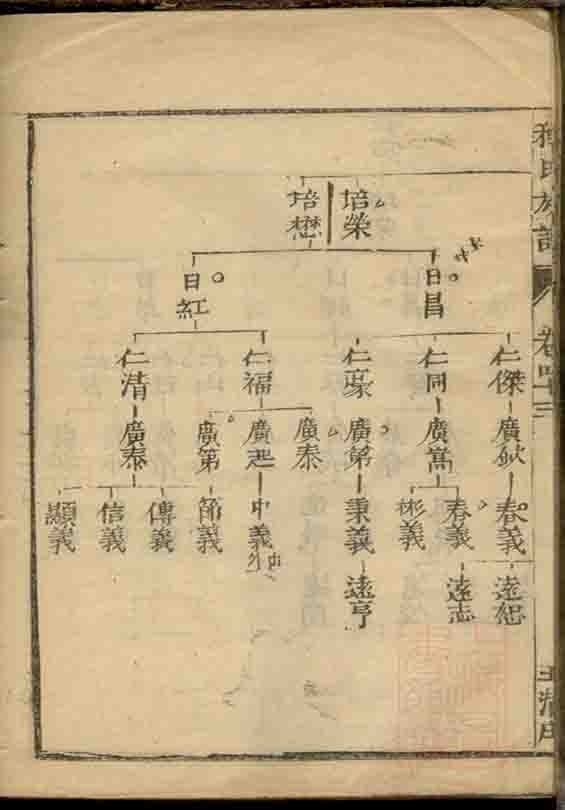 氏族譜
卷四十三
培榮
培懋
日昌
日紅
仁傑
仁同
仁豪
仁福
仁清
廣欽
廣嵩
廣第
廣泰
廣起
廣第
廣泰
春義
春義
彬義
秉義
中義
節義
傳義
信義
顯義
遠恕
遠志
遠亨